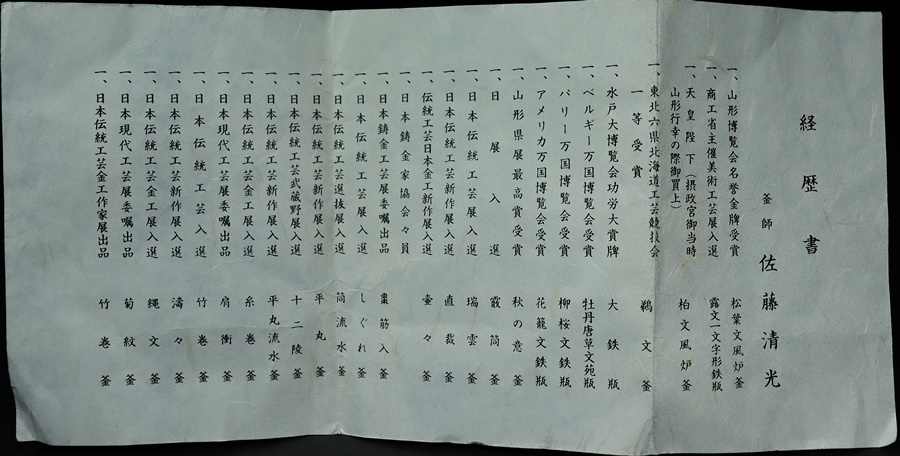 経歴書
釜師 佐藤清光
一、山形博覧会名誉金牌受賞 松葉文風炉釜
一、商工省主催美術工芸展入選 露文一文字形鉄瓶
一、天皇陛下（摂政宮御当時
山形行幸の際御買上） 柏文風炉釜
一、東北六県北海道工芸競技会
一等受賞 鵜文釜
一、水戸大博覧会功労大賞牌 大鉄瓶
一、ベルギー万国博覧会受賞 牡丹唐草文苑瓶
一、パリー万国博覧会受賞 柳桜文鉄瓶
一、アメリカ万国博覧会受賞 花籠文鉄瓶
一、山形県展最高賞受賞 秋の意釜
一、日展入選 霰筒釜
一、日本伝統工芸展入選 瑞雲釜
一、日本伝統工芸新作展入選 直裁釜
一、伝統工芸日本金工新作展入選 壷々釜
一、日本鋳金家協会々員
一、日本鋳金工芸展委嘱出品 棗筋入釜
一、日本伝統工芸展入選 しぐれ釜
一、日本伝統工芸選抜展入選 筒流水釜
一、日本伝統工芸新作展入選 平丸釜
一、日本伝統工芸武蔵野展入選 十二陵釜
一、日本伝統工芸新作展入選 平丸流水釜
一、日本伝統工芸金工展入選 糸巻釜
一、日本現代工芸展委嘱出品 肩衝釜
一、日本伝統工芸入選 竹巻釜
一、日本伝統工芸新作展入選 濤々釜
一、日本伝統工芸金工展入選 縄文釜
一、日本現代工芸展委嘱出品 菊紋釜
一、日本伝統工芸金工作家展出品 竹巻釜